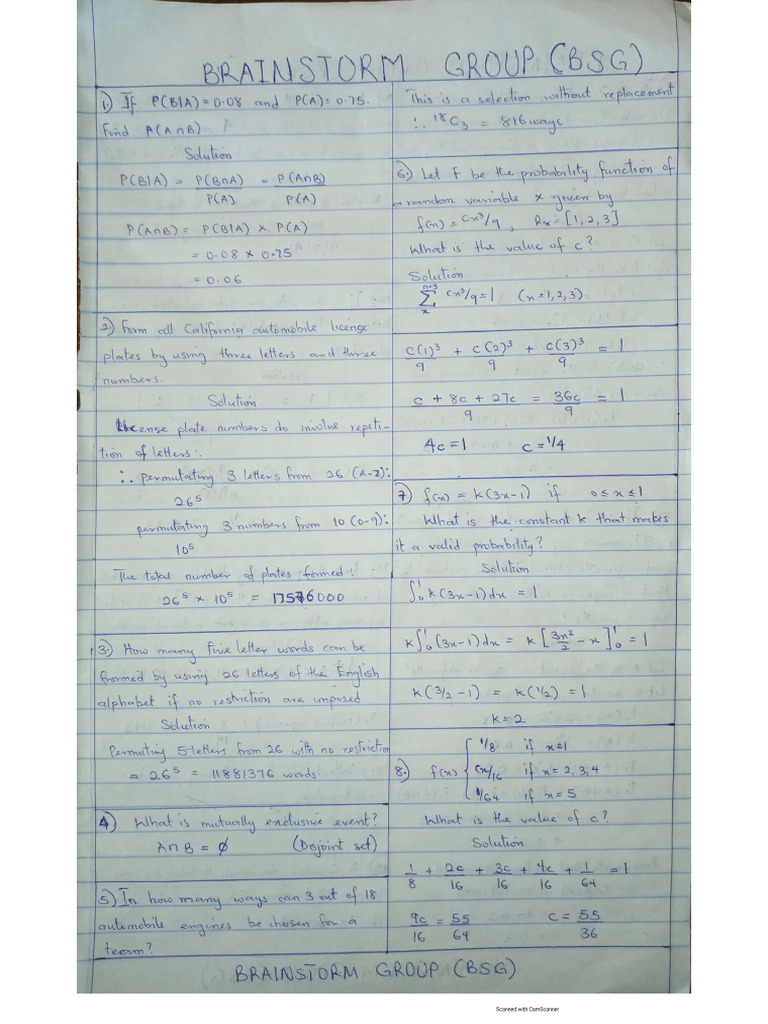 BRAINSTORM GROUP (BSG)
1.) If P(B|A) = 0.08 and P(A) = 0.75.
Find P(A∩B)
Solution
P(B|A) = P(B∩A) = P(A∩B)
P(A) P(A)
P(A∩B) = P(B|A) x P(A)
= 0.08 x 0.75
= 0.06
2.) Form all California automobile license
plates by using three letters and three
numbers.
Solution
License plate numbers do involve repeti-
tion of letters:.
∴ permutating 3 letters from 26 (A-Z):
26⁵
permutating 3 numbers from 10 (0-9):
10⁵
The total number of plates formed:
26⁵ x 10⁵ = 17576000
3.) How many five letter words can be
fromed by using 26 letters of the English
alphabet if no restriction are imposed
Solution
Permuting 5-letters from 26 with no restriction
= 26⁵ = 11881376 words
4) What is mutually exclusive event?
A∩B = ∅ (Disjoint set)
5) In how many ways can 3 out of 18
automobile engines be chosen for a
team?
This is a selection without replacement
∴ ¹⁸C₃ = 816 ways
6.) Let F be the probability function of
a random variable x given by
f(x) = Cx³/9, Rx = [1, 2, 3]
What is the value of c?
Solution
n=3
Σ Cx³/9 = 1 (x = 1, 2, 3).
x
C(1)³ + C(2)³ + C(3)³ = 1
9 9 9
C + 8C + 27C = 36C = 1
9 9
4C = 1 C = 1/4
7.) f(x) = k(3x-1) if 0 ≤ x ≤ 1
What is the constant k that makes
it a valid probability?
Solution
∫₀¹ k(3x-1)dx = 1
k∫₀¹(3x-1)dx = k[3x²/2 - x]₀¹ = 1
k(3/2 - 1) = k(1/2) = 1
k = 2
8.) f(x) { 1/8 if x=1
Cx/16 if x = 2, 3, 4
1/64 if x = 5
What is the value of c?
Solution
1/8 + 2C/16 + 3C/16 + 4C/16 + 1/64 = 1
9C/16 = 55/64 C = 55/36
BRAINSTORM GROUP (BSG)
Scanned with CamScanner